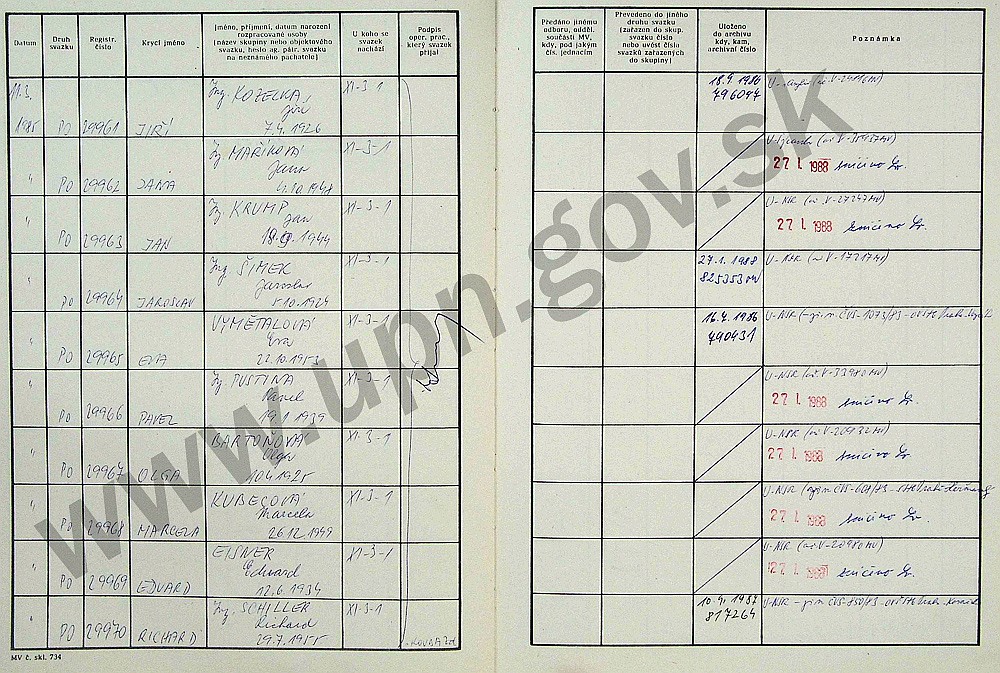 Datum
Druh svazku
Registr. číslo
Krycí jméno
Jméno, příjmení, datum narození rozpracované osoby (název skupiny nebo objektového svazku, heslo ag. pátr. svazku na neznámého pachatele)
U koho se svazek nachází
Podpis oper. prac., který svazek přijal
Předáno jinému odboru, odděl. součásti MV, kdy, pod jakým čís. jednacím
Převedeno do jiného druhu svazku (zařazen do skup. svazku číslo nebo uvést čísla svazků zařazených do skupiny)
Uloženo do archivu kdy, kam, archivní číslo
Poznámka
11.3. Ing. KOZELKA, XI-3 1
Jiří
1985 PO 29961 JIŘÍ 7.4. 1926
18.4 1986
796047
Ing. MAŘÍKOVÁ XI-3-1
Jana
" PO 29962 JANA 4.10.1948
27 1. 1988 zničeno
Ing. KRUMP XI-3-1
Jan
" PO 29963 JAN 1944
U-NSR (V-27247 MV)
27 1. 1988 zničeno
Ing. ŠIMEK XI-3-1
Jaroslav
" PO 29964 JAROSLAV 5 10.1924
27.1. 1988 U-NSR (V-17217 MV)
825353 MV
VYMĚTALOVÁ XI-3-1
Eva
" PO 29965 EVA 22.10.1953
16.4. 1986 U-NSR
790431
Ing. PUSTINA XI-3-1
Pavel
" PO 29966 PAVEL 19.1 1939
U-NSR (V-33980 MV)
27 1. 1988 zničeno
BARTOŇOVÁ XI-3-1
Olga
" PO 29967 OLGA 10.4.1925
U-NSR (V-20932 MV)
27 1. 1988 zničeno
KUBEŠOVÁ XI-3-1
Marcela
" PO 29968 MARCELA 26.12.1949
U-NSR
27 1. 1988 zničeno
EISNER XI-3-1
Eduard
" PO 29969 EDUARD 12.6.1934
U-NSR (V-20980 MV)
27 1. 1988 zničeno
Ing. SCHILLER XI-3-1
Richard
" PO 29970 RICHARD 29.7.1955
10.4. 1987 U-NSR
817264
MV č. skl. 734
www.upn.gov.sk